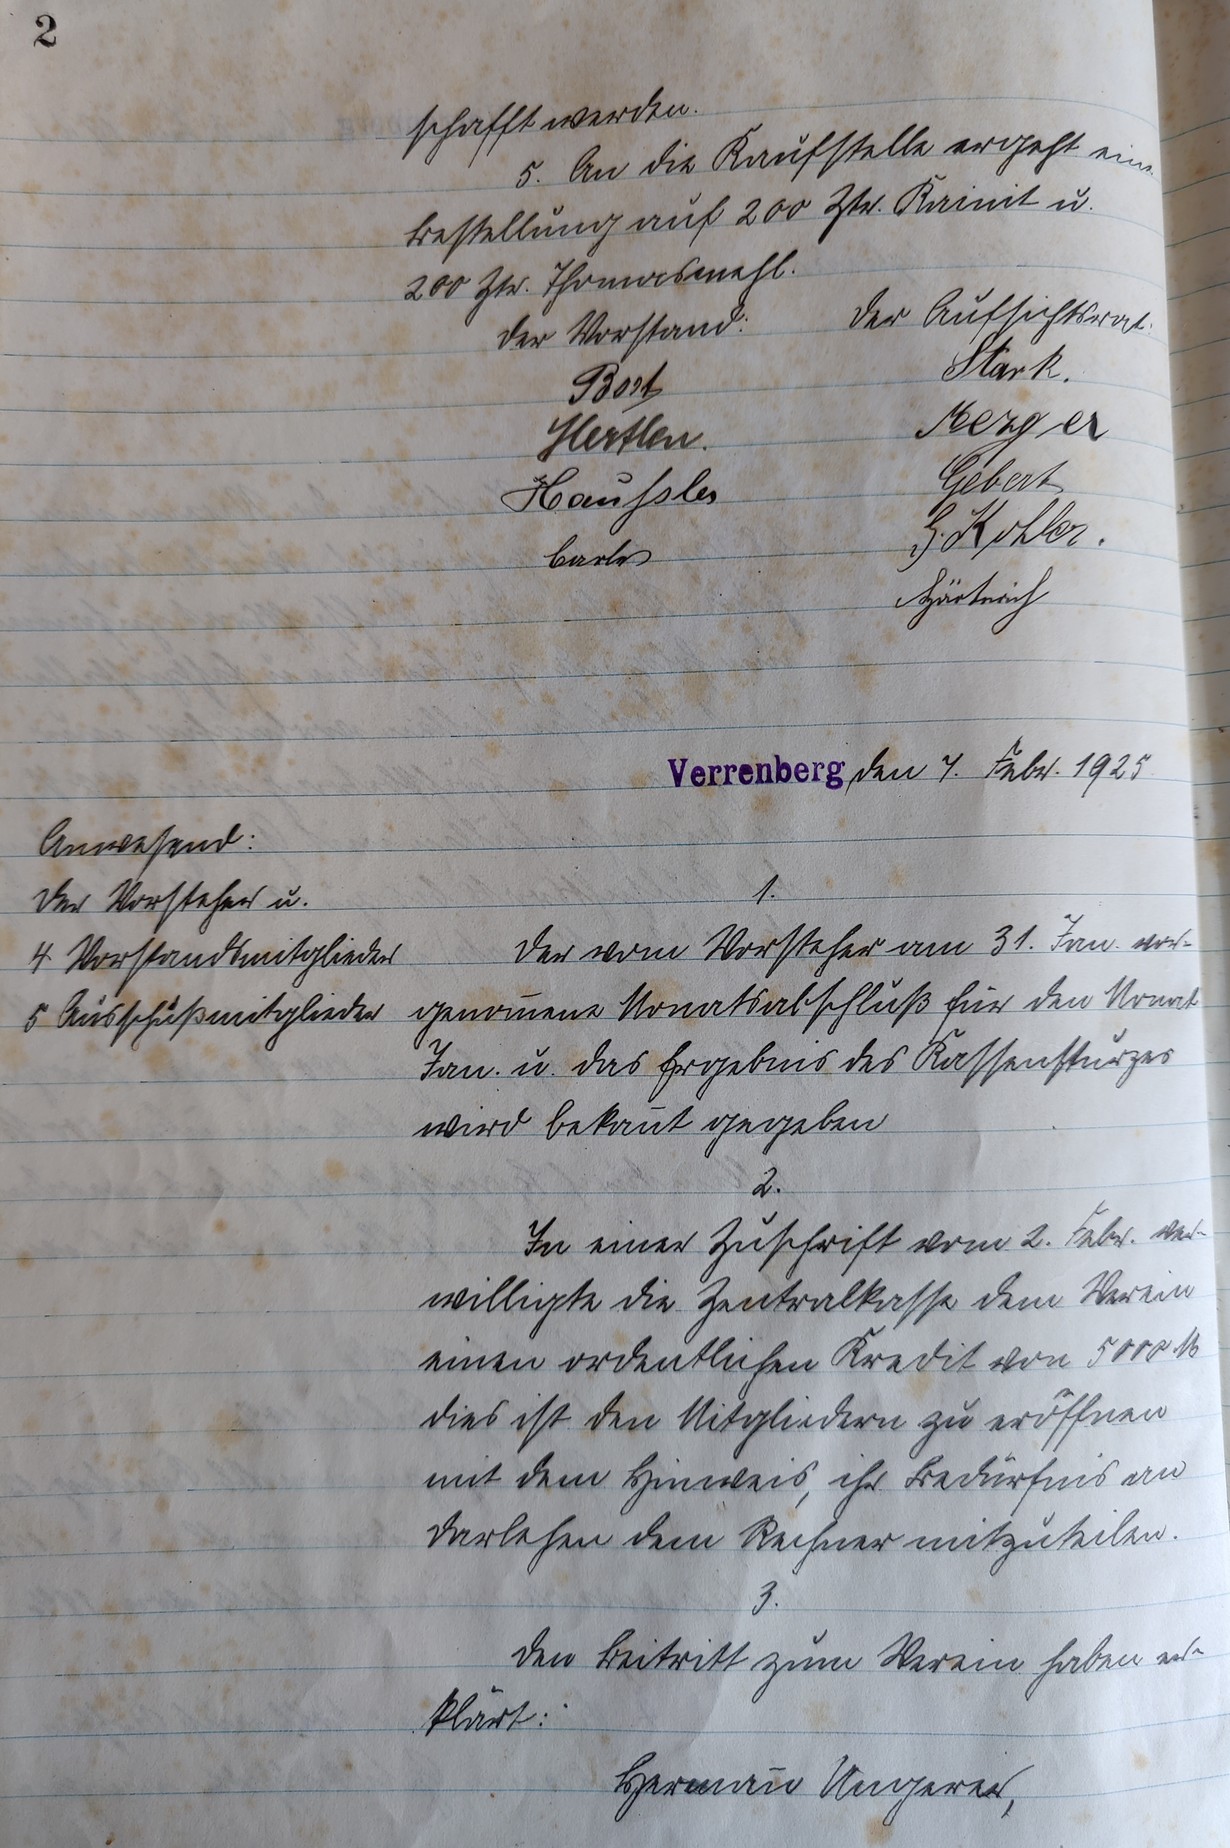 2
schafft werden.
5. An die Kaufstelle ergeht eine
Bestellung auf 200 Ztr. Kainit u.
200 Ztr. Thomasmehl.
Der Vorstand: Der Aufsichtsrat:
Bort Stark.
Hertlen. Mezger
Haussler Gebert
Carle G. Kohler.
Härterich
Verrenberg, den 7. Febr. 1925
Anwesend:
Der Vorsteher u.
4 Vorstandsmitglieder
5 Ausschußmitglieder
1.
Der vom Vorsteher am 31. Jan. vor-
genom̄ene Monatsabschluß für den Monat
Jan. u. das Ergebnis des Kassensturzes
wird bekan̄t gegeben
2.
In einer Zuschrift vom 2. Febr. ver-
willigte die Zentralkasse dem Verein
einen ordentlichen Kredit von 5000 M
dies ist den Mitgliedern zu eröffnen
mit dem Hinweis, ihr Bedürfnis an
Darlehen dem Rechner mitzuteilen.
3.
Den Beitritt zum Verein haben er-
klärt:
Herman̄ Ungerer,